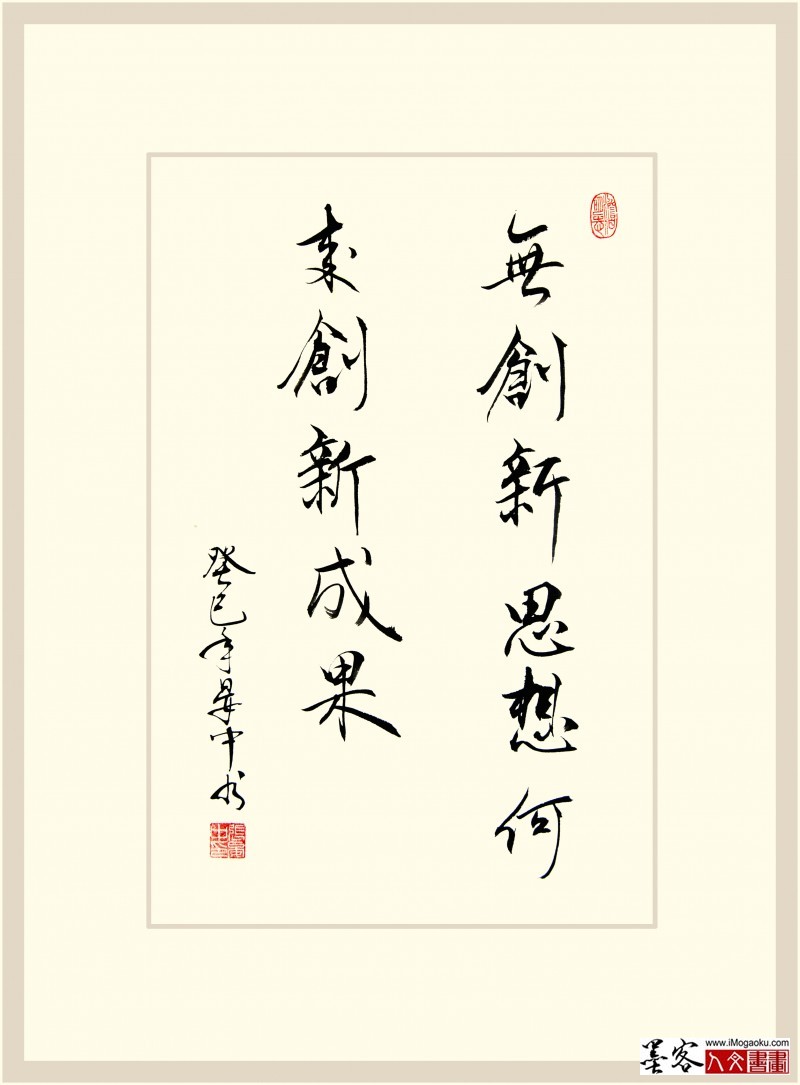 無創新思想何
来創新成果
癸巳年景中书
www.iMogaoku.com
墨客
人文書畫